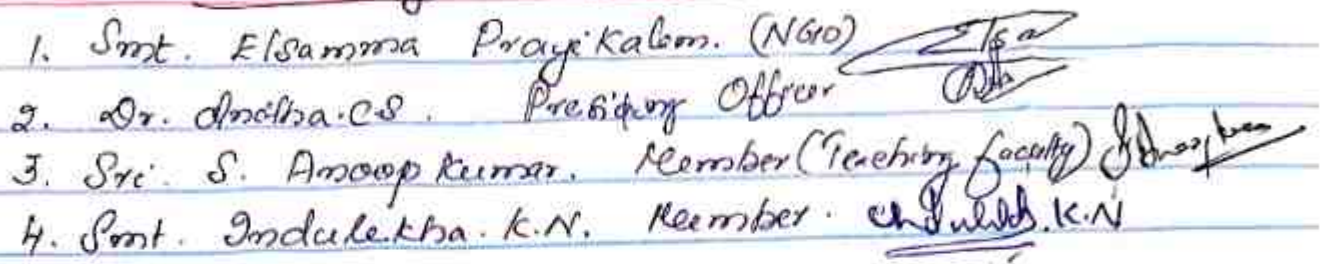 1. Smt. Elsamma Prayikalam. (NGO) Elsa
2. Dr. Anitha.C S. Presiding Officer
3. Sri. S. Anoop Kumar. Member (Teaching faculty)
4. Smt. Indulekha. K.N. Member. K.N